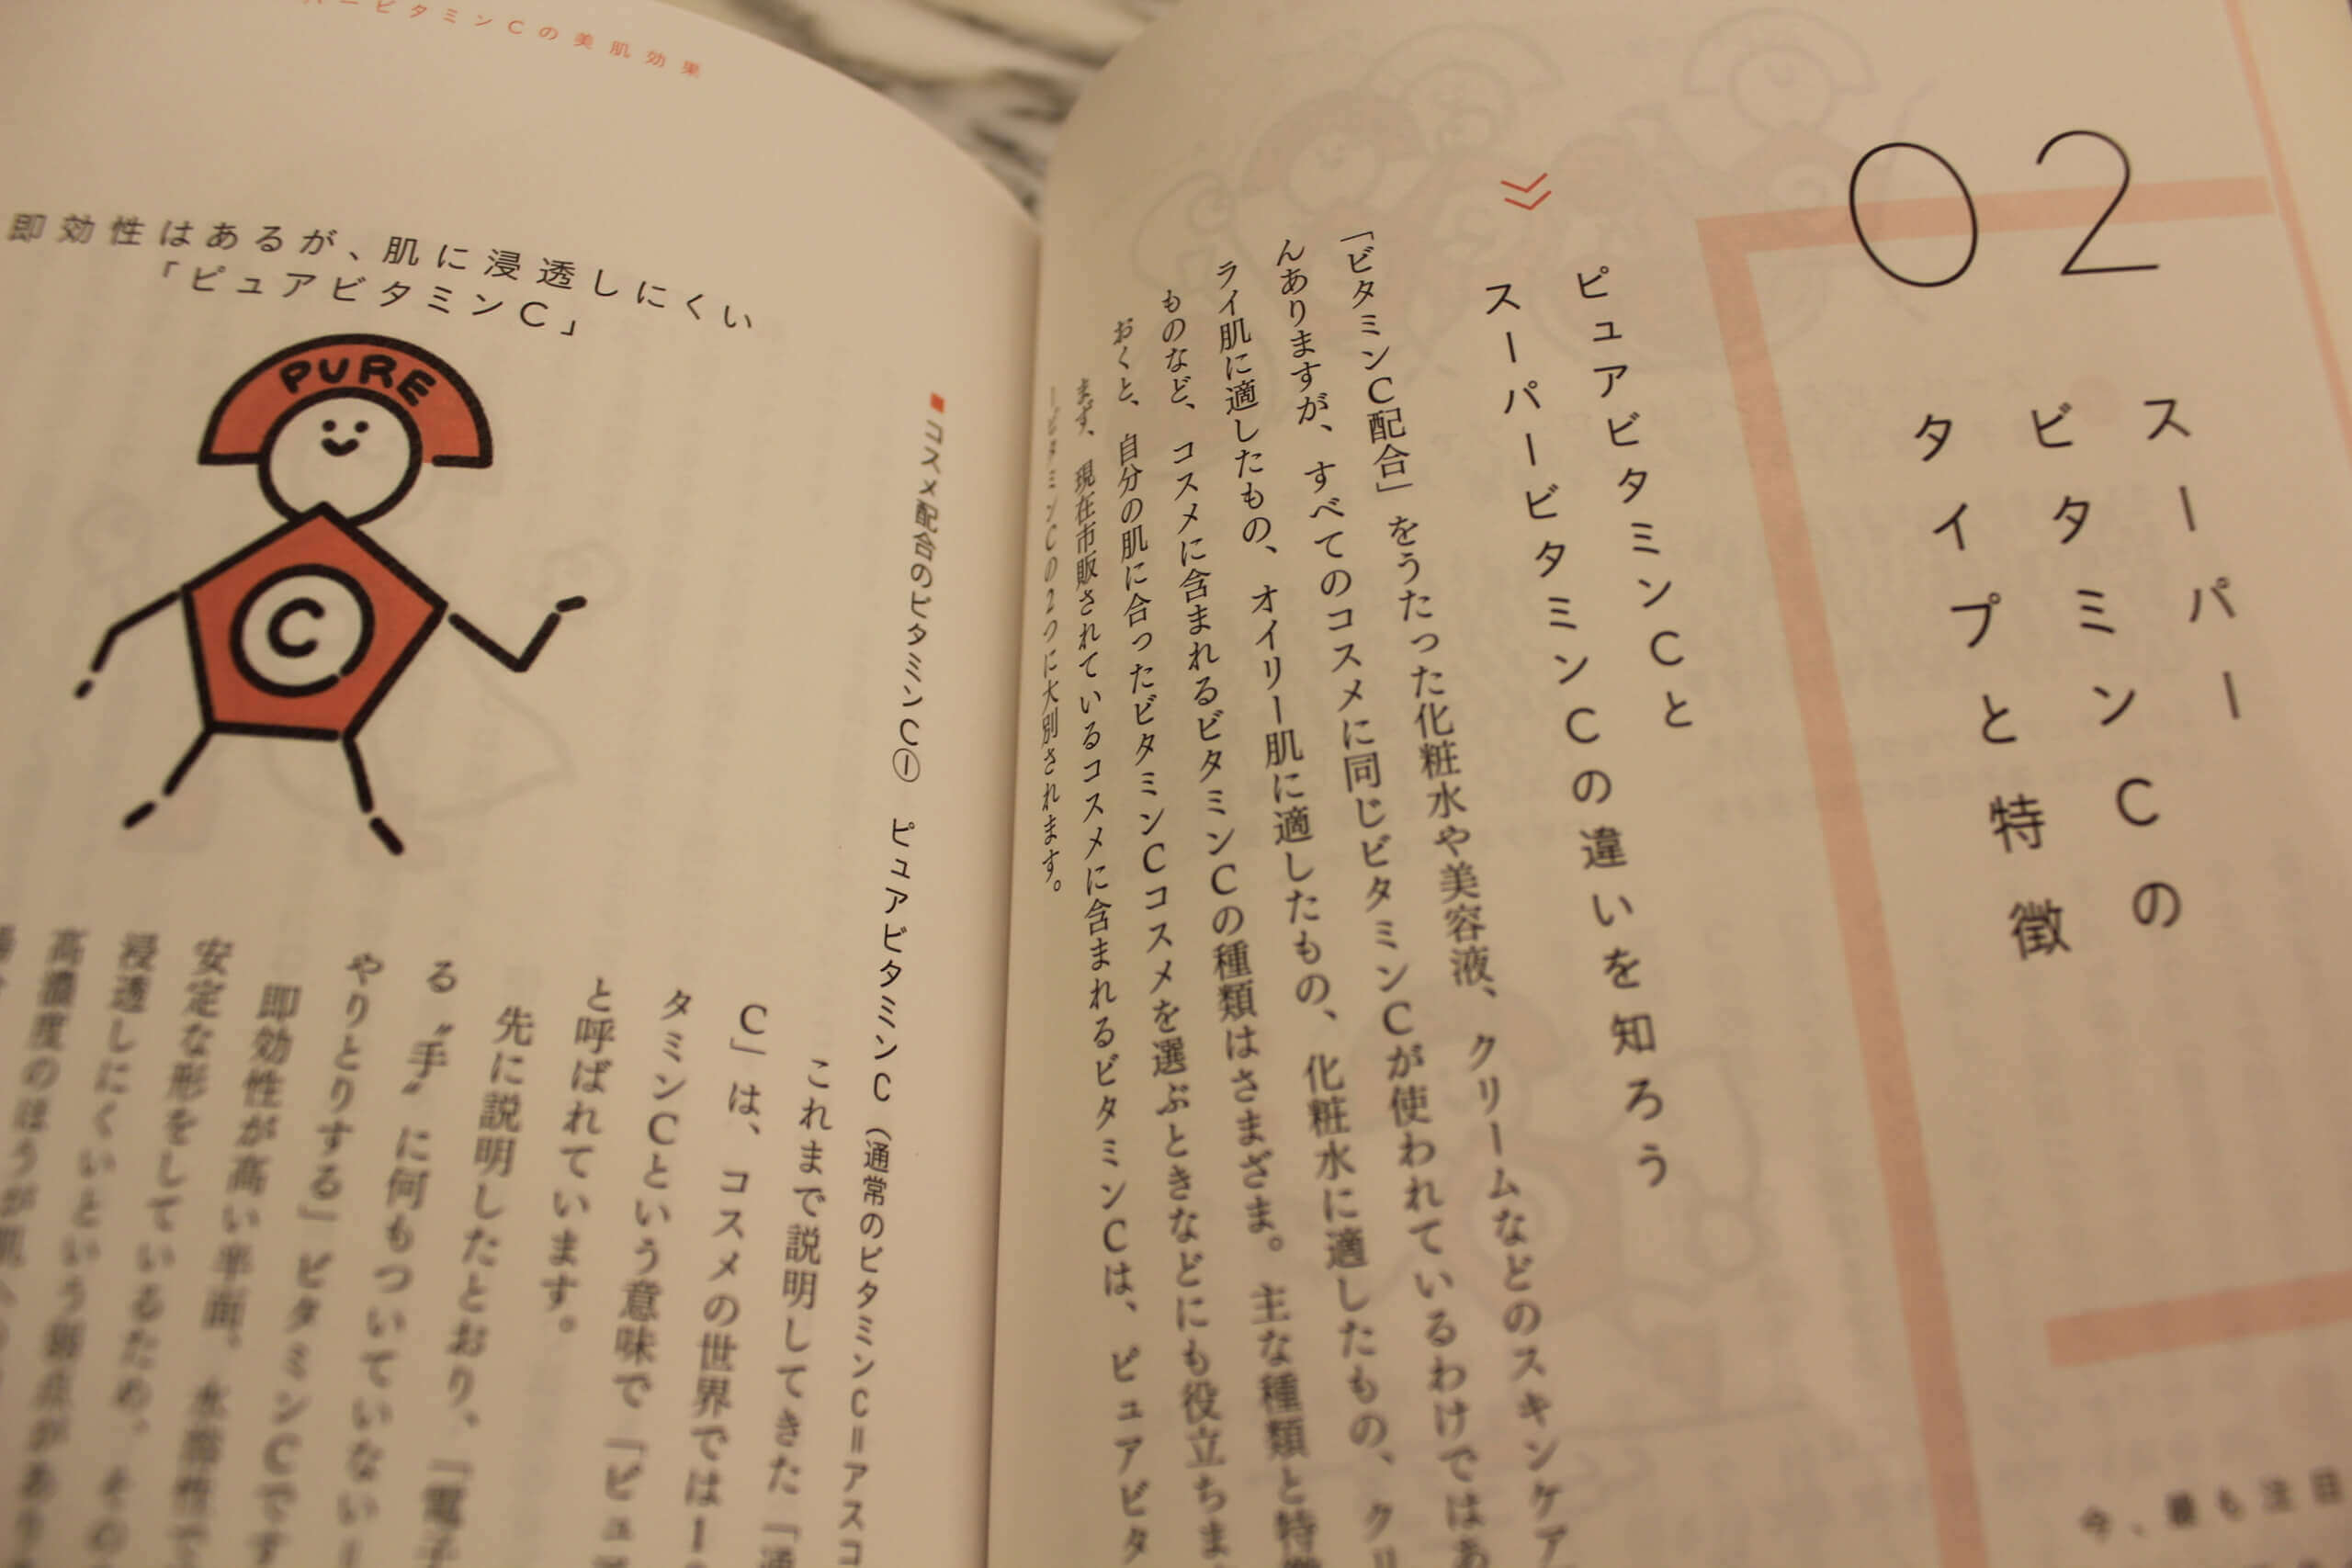 02
スーパー
ビタミンCの
タイプと特徴
今、最も注目
ピュアビタミンCと
スーパービタミンCの違いを知ろう
「ビタミンC配合」をうたった化粧水や美容液、クリームなどのスキンケア
んありますが、すべてのコスメに同じビタミンCが使われているわけではあ
ライ肌に適したもの、オイリー肌に適したもの、化粧水に適したもの、クリ
ものなど、コスメに含まれるビタミンCの種類はさまざま。主な種類と特徴
おくと、自分の肌に合ったビタミンCコスメを選ぶときなどにも役立ちま
まず、現在市販されているコスメに含まれるビタミンCは、ピュアビタ
ービタミンCの2つに大別されます。
ービタミンCの美肌効果
■コスメ配合のビタミンC① ピュアビタミンC(通常のビタミンC=アスコ
即効性はあるが、肌に浸透しにくい
「ピュアビタミンC」
PURE
C
これまで説明してきた「通
C」は、コスメの世界では
タミンCという意味で「ピュ
と呼ばれています。
先に説明したとおり、「電子
る〝手〟に何もついていない
やりとりする」ビタミンCです
即効性が高い半面、水溶性で
安定な形をしているため、その
浸透しにくいという弱点があり
高濃度のほうが肌への